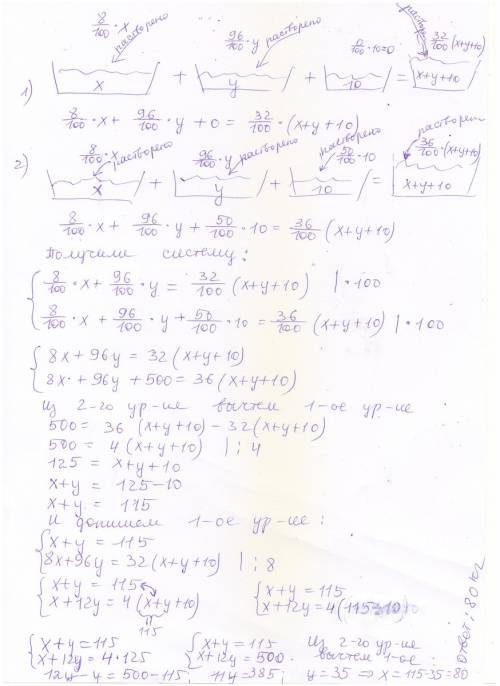 8/100 · x растворено
96/100 · y растворено
0/100 · 10 = 0
раствор
32/100 (x+y+10)
1) x + y + 10 = x+y+10
8/100 · x + 96/100 · y + 0 = 32/100 · (x+y+10)
8/100 · x растворено
96/100 · y растворено
растворено 50/100 · 10
растворен
36/100 · (x+y+10)
2) x + y + 10 = x+y+10
8/100 · x + 96/100 · y + 50/100 · 10 = 36/100 (x+y+10)
Получили систему:
{ 8/100 · x + 96/100 · y = 32/100 (x+y+10) | · 100
8/100 · x + 96/100 · y + 50/100 · 10 = 36/100 (x+y+10) | · 100
{ 8x + 96y = 32(x+y+10)
8x + 96y + 500 = 36(x+y+10)
Из 2-го ур-ие вычтем 1-ое ур-ие
500 = 36 (x+y+10) - 32(x+y+10)
500 = 4(x+y+10) | : 4
125 = x+y+10
x+y = 125-10
x+y = 115
И допишем 1-ое ур-ие:
{ x+y = 115
8x+96y = 32(x+y+10) | : 8
{ x+y = 115
x+12y = 4(x+y+10)
115
{ x+y = 115
x+12y = 4(115+10)
{ x+y = 115
x+12y = 4·125
{ x+y = 115
x+12y = 500.
Из 2-го ур-ие вычтем 1-ое:
12y-y = 500-115; 11y = 385; y = 35 ⇒ x = 115-35 = 80
ответ: 80 кг